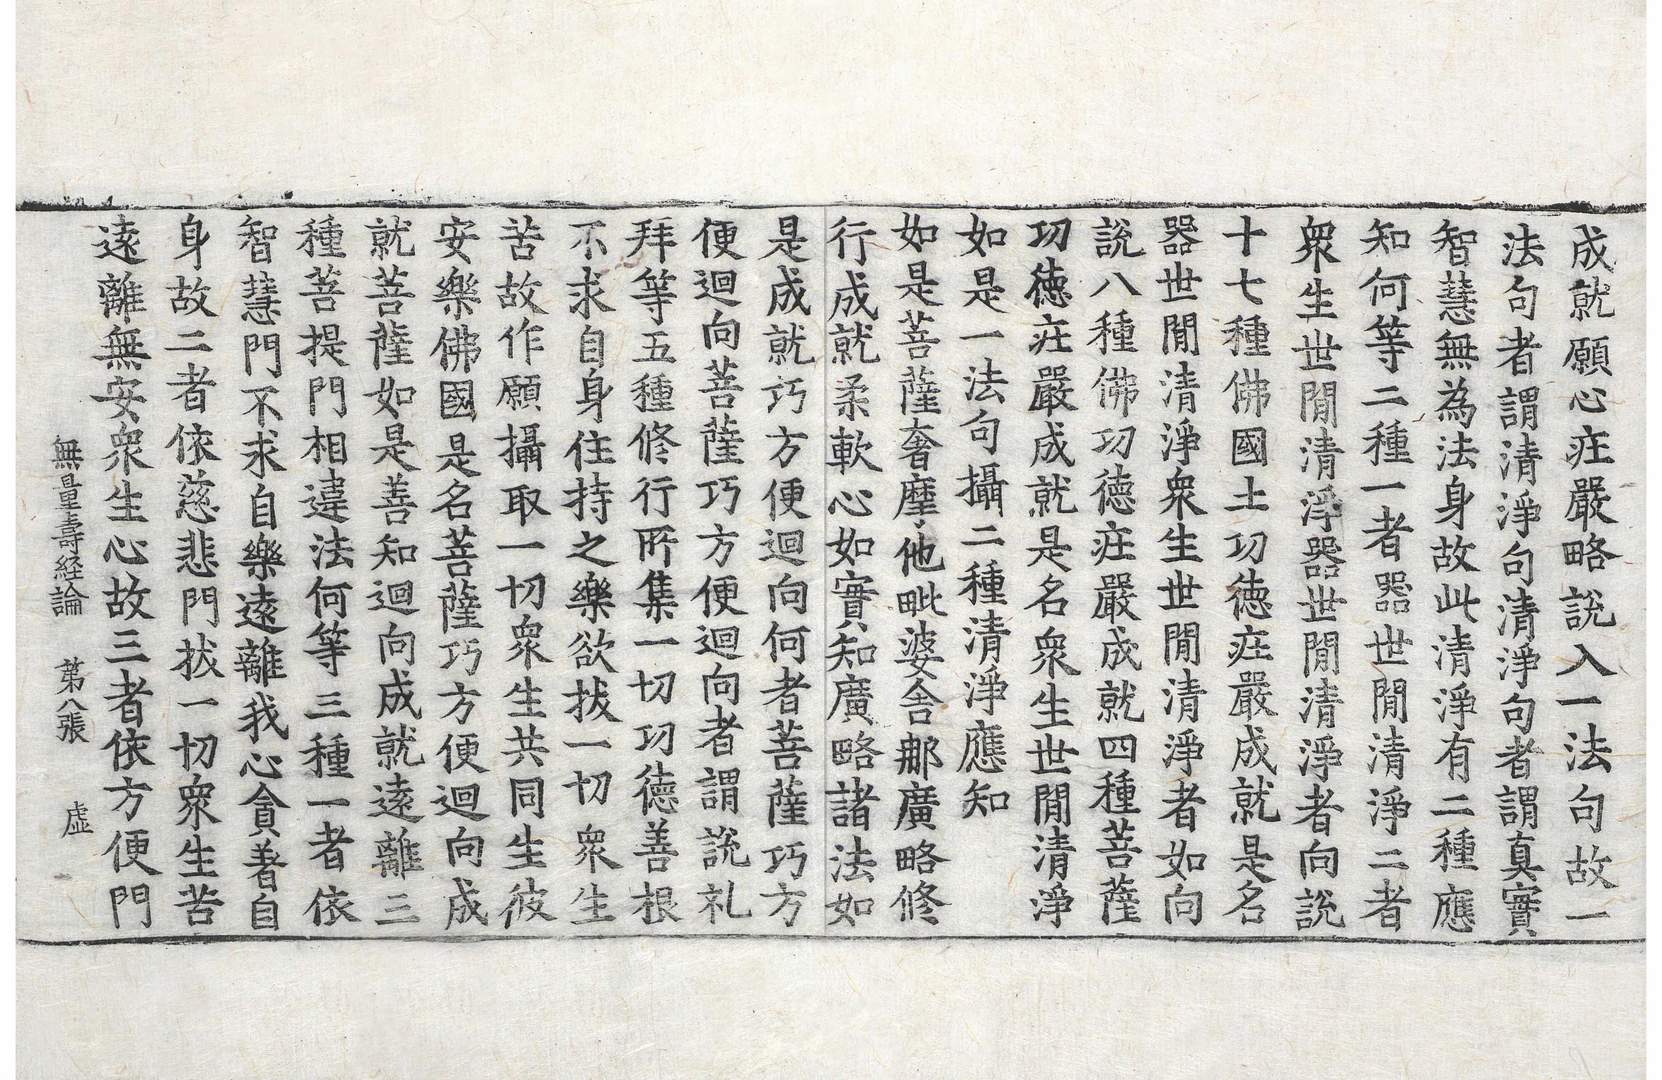 成就願心庄嚴略說入一法句故一
法句者謂清淨句清淨句者謂真實
智慧無為法身故此清淨有二種應
知何等二種一者器世閒清淨二者
衆生世閒清淨器世閒清淨者向說
十七種佛國土功德庄嚴成就是名
器世閒清淨衆生世閒清淨者如向
說八種佛功德庄嚴成就四種菩薩
功德庄嚴成就是名衆生世閒清淨
如是一法句攝二種清淨應知
如是菩薩奢摩他毗婆舍那廣略修
行成就柔軟心如實知廣略諸法如
是成就巧方便迴向何者菩薩巧方
便迴向菩薩巧方便迴向者謂說礼
拜等五種修行所集一切功德善根
不求自身住持之樂欲拔一切衆生
苦故作願攝取一切衆生共同生彼
安樂佛國是名菩薩巧方便迴向成
就菩薩如是善知迴向成就遠離三
種菩提門相違法何等三種一者依
智慧門不求自樂遠離我心貪著自
身故二者依慈悲門拔一切衆生苦
遠離無安衆生心故三者依方便門
無量壽経論　第八張　虛